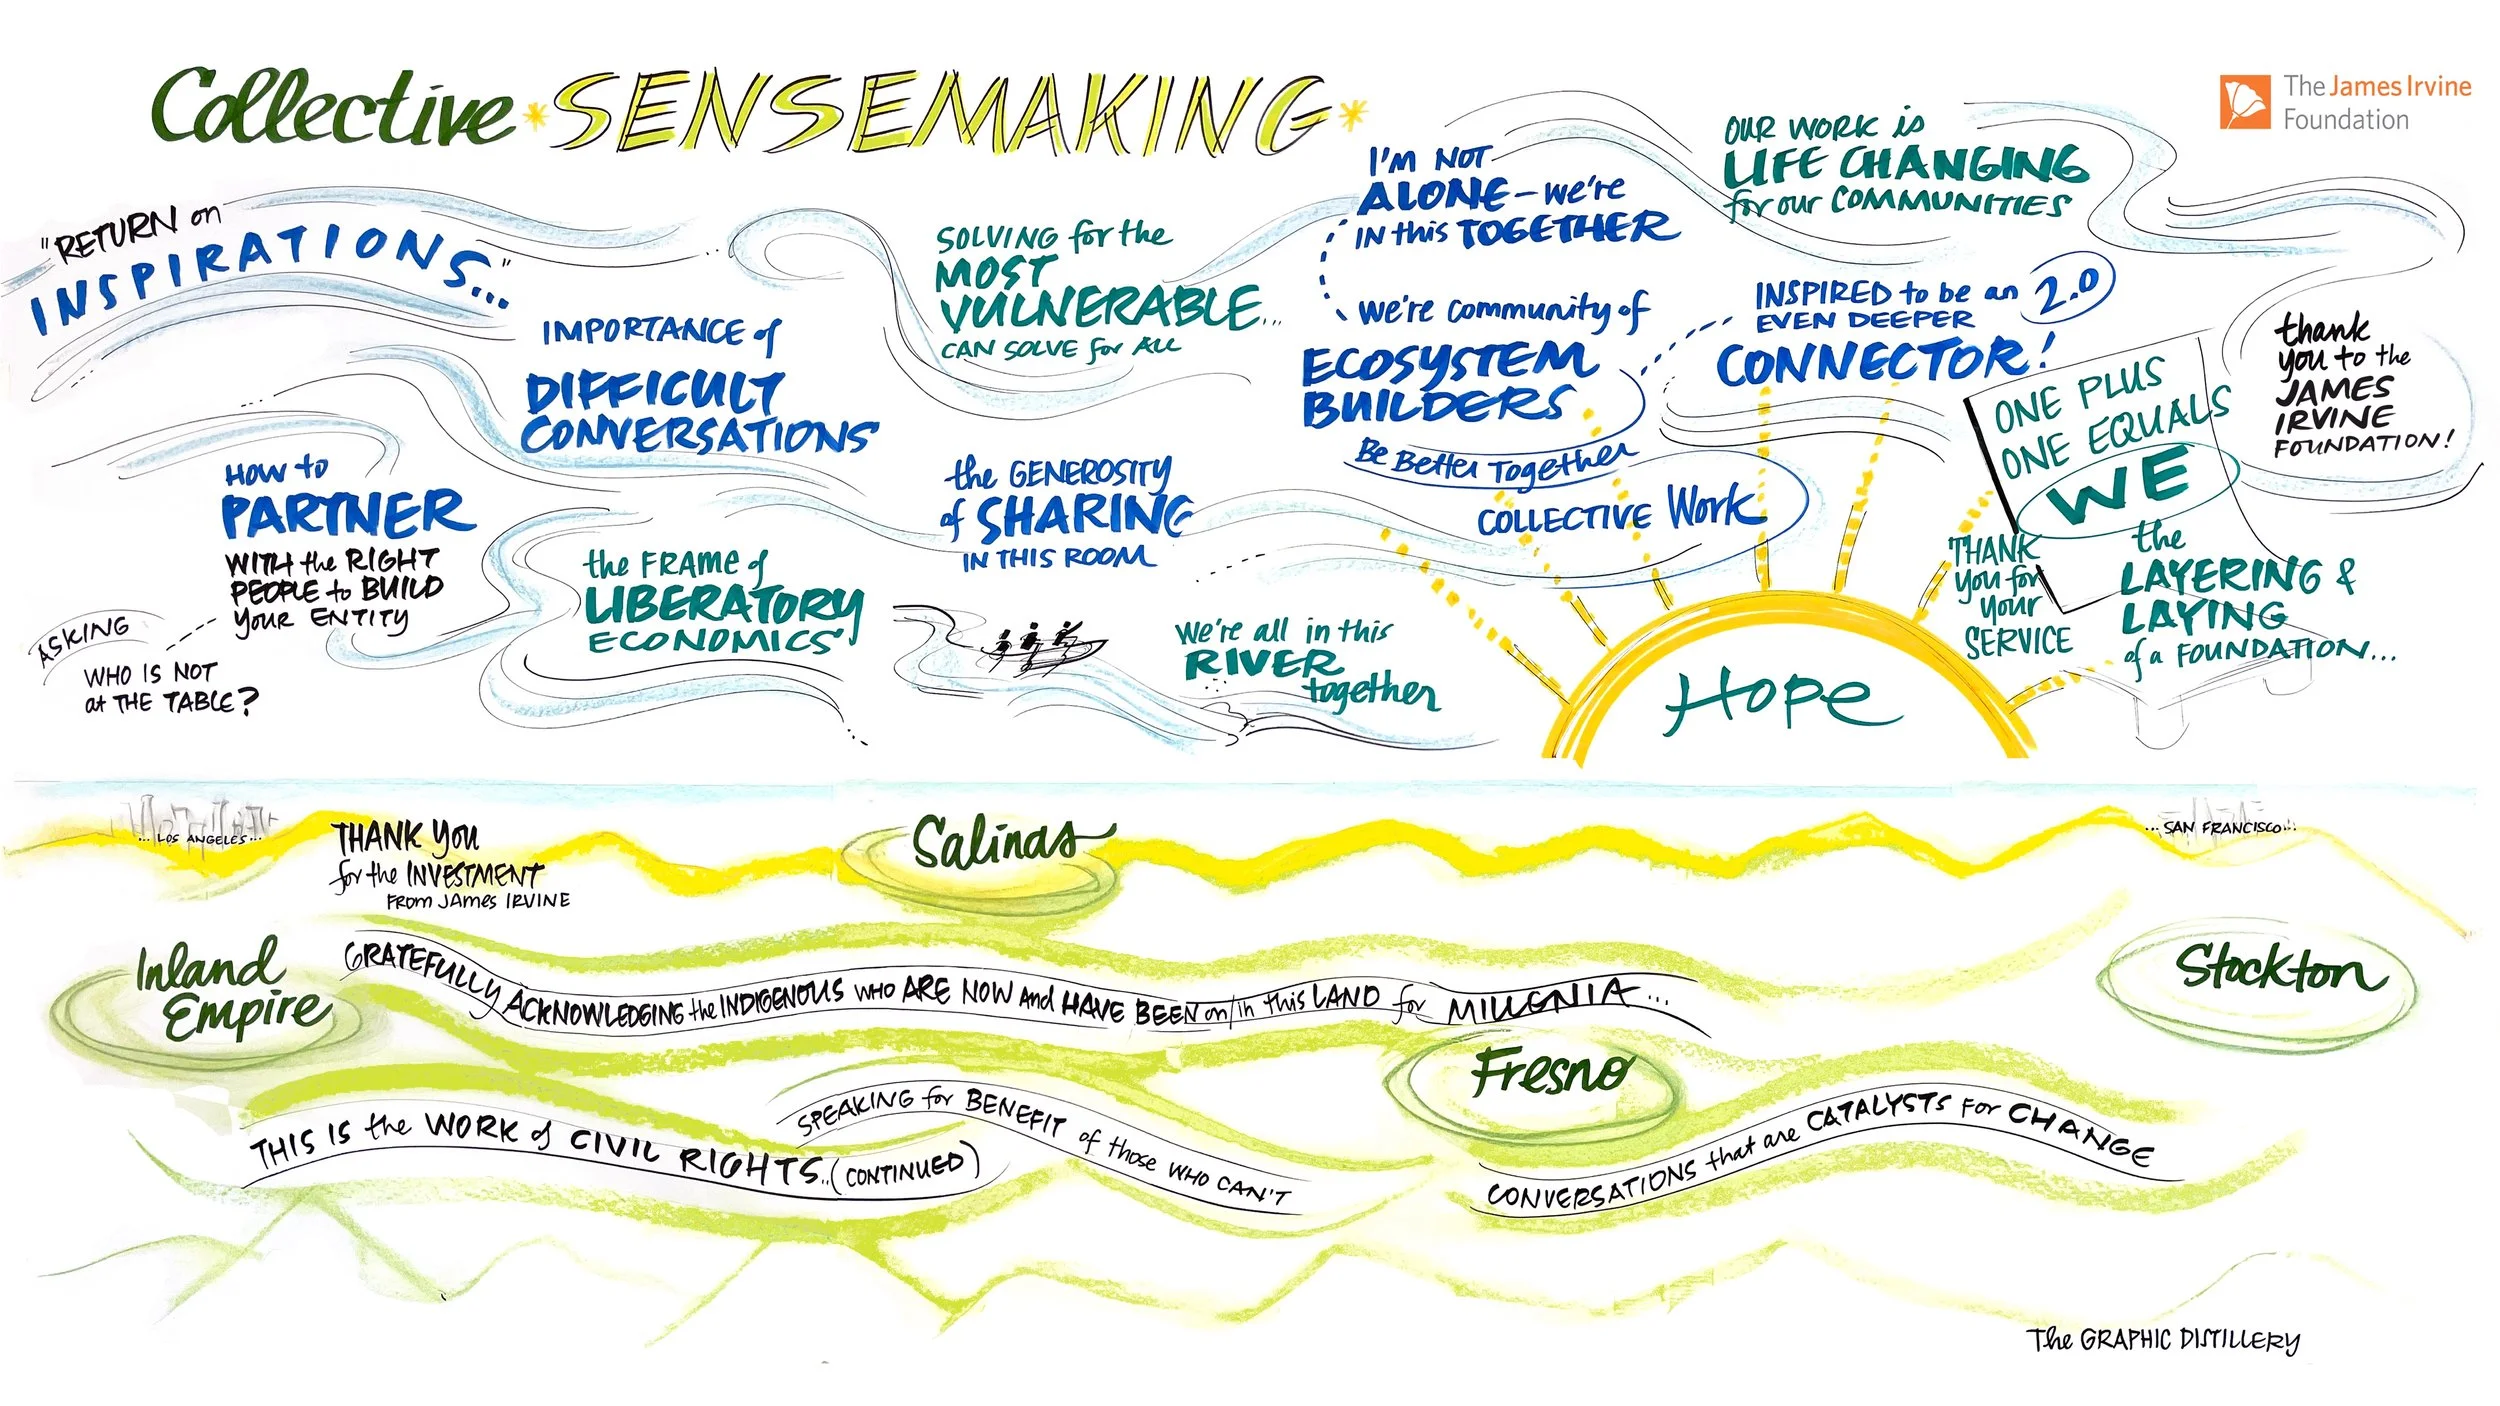 Collective * SENSEMAKING *
The James Irvine
Foundation
"RETURN on
INSPIRATIONS..."
IMPORTANCE of
DIFFICULT
CONVERSATIONS
HOW to
PARTNER
WITH the RIGHT
PEOPLE to BUILD
YOUR ENTITY
ASKING
WHO IS NOT
at THE TABLE?
the FRAME of
LIBERATORY
ECONOMICS
SOLVING for the
MOST
VULNERABLE...
CAN SOLVE for ALL
the GENEROSITY
of SHARING
IN THIS ROOM
We're all in this
RIVER
together
I'M NOT
ALONE - we're
IN this TOGETHER
we're community of
ECOSYSTEM
BUILDERS
Be Better Together
COLLECTIVE Work
OUR WORK is
LIFE CHANGING
for our COMMUNITIES
INSPIRED to be an
EVEN DEEPER
2.0
CONNECTOR!
ONE PLUS
ONE EQUALS
WE
thank
you to the
JAMES
IRVINE
FOUNDATION!
THANK
you for
your
SERVICE
the
LAYERING &
LAYING
of a FOUNDATION...
Hope
... LOS ANGELES...
THANK YOU
for the INVESTMENT
FROM JAMES IRVINE
Salinas
... SAN FRANCISCO...
Inland
Empire
GRATEFULLY ACKNOWLEDGING the INDIGENOUS WHO ARE NOW and HAVE BEEN on/in this LAND for MILLENIA...
Stockton
Fresno
THIS IS the WORK of CIVIL RIGHTS..(CONTINUED)
SPEAKING for BENEFIT of those WHO CAN'T
CONVERSATIONS that are CATALYSTS FOR CHANGE
The GRAPHIC DISTILLERY